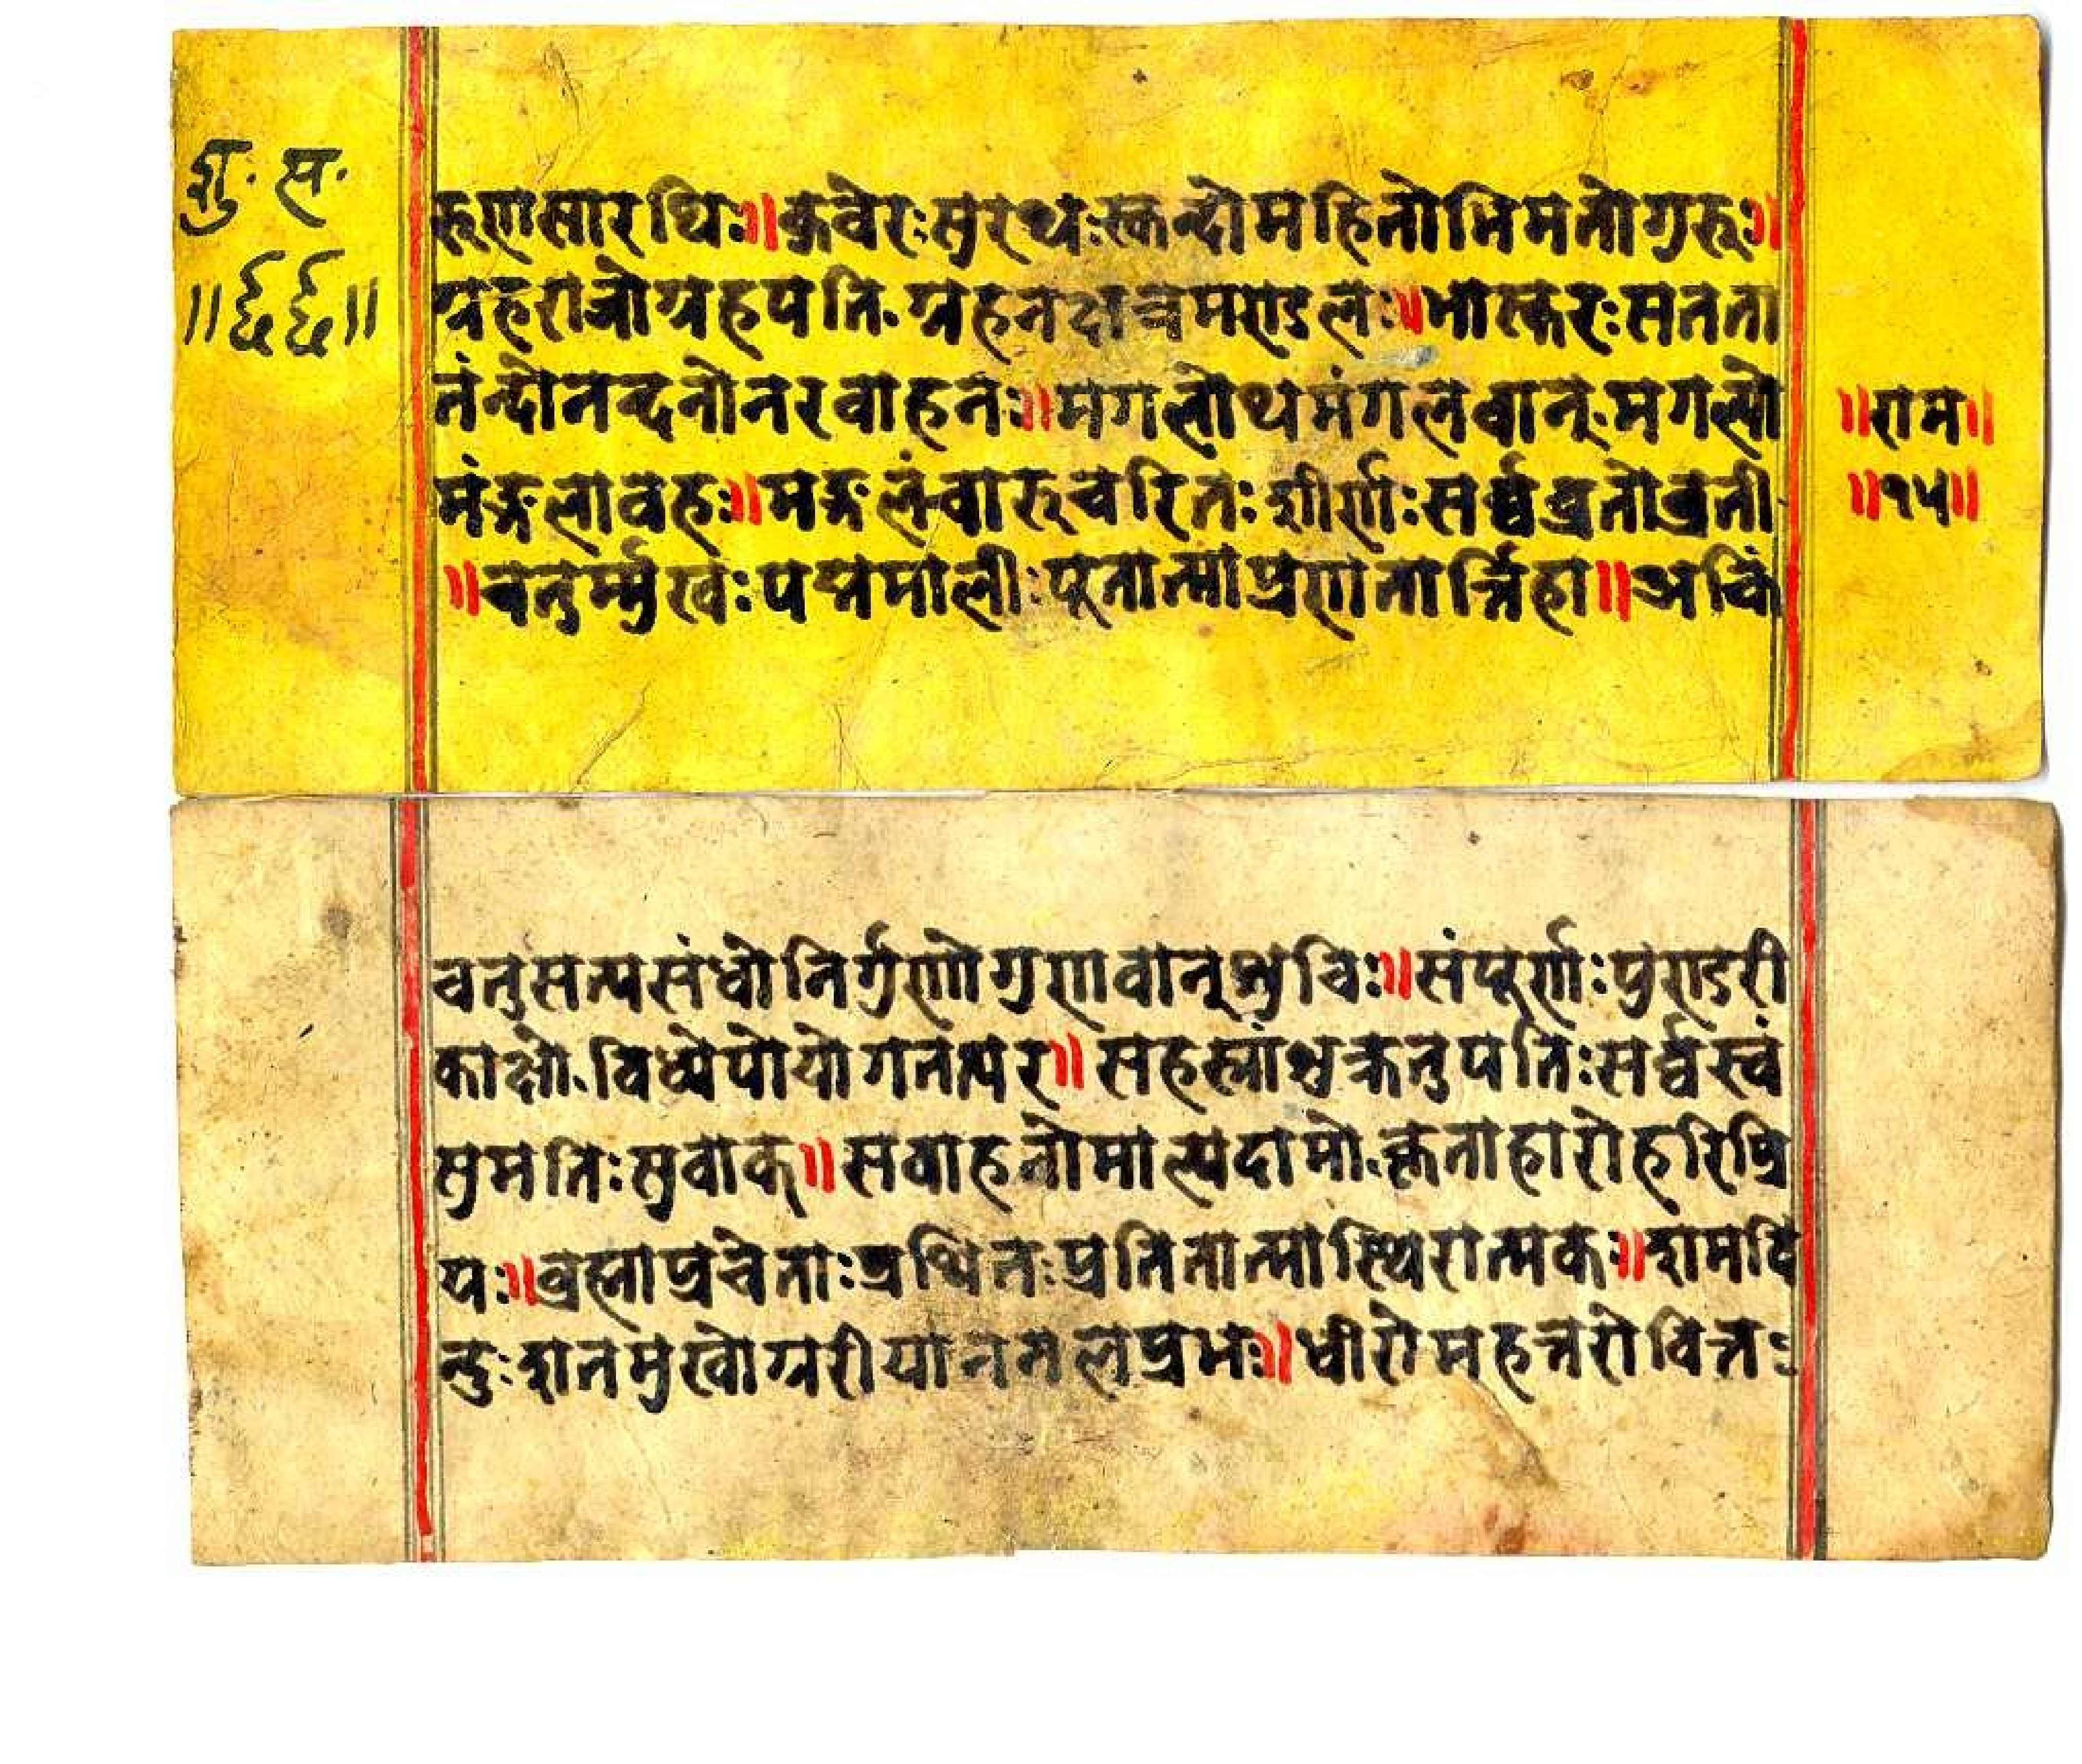 शु. स.
॥ ६६ ॥
रूणसारथिः॥कवेरःसुरथःस्कन्दोमहितोभिमतोगुरूः॥
ग्रहराजोग्रहपति.ग्रहनक्षत्रमण्डलः॥भास्करःसतता
नंन्दोनन्दनोनरवाहनः॥मगलोथमंगलवान्.मगलो
मंङ्गलावहः॥मङ्गलंचारूचरितःशीर्णःसर्व्वव्रतोव्रती
॥चतुर्म्मुखःपद्ममालीःपूतात्माप्रणतार्त्तिहा॥अकिं
॥राम॥
॥१५॥
चनुसत्यसंधोनिर्गुणोगुणवान्शुचिः॥संपूर्णःपुण्डरी
काक्षो.विधेयोयोगतत्पर॥सहस्रांशुक्रतुपतिःसर्व्वस्वं
सुमतिःसुवाक्॥सवाहनोमाल्यदामो.कृताहारोहरिप्रि
यः॥ब्रह्माप्रचेताःप्रथितःप्रतितात्मास्थिरात्मकः॥शमवि
न्दुःशतमुखोगरीयाननलप्रभः॥धीरोमहत्तरोवित्तः